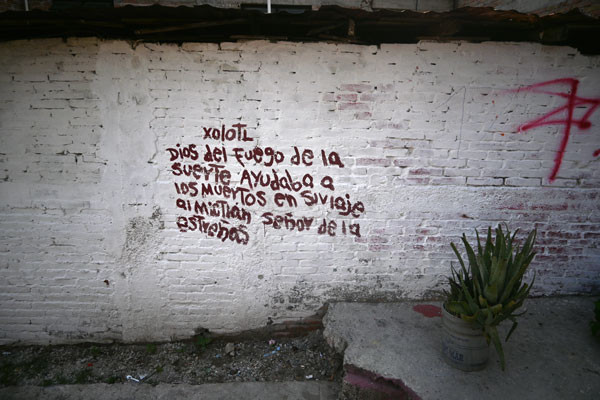 XOLOTL
DIOS del fuego de la
SUERTE AYUDABA a
los MUERTOS en SU VIAJE
al Mictlán señor de la
estrehas